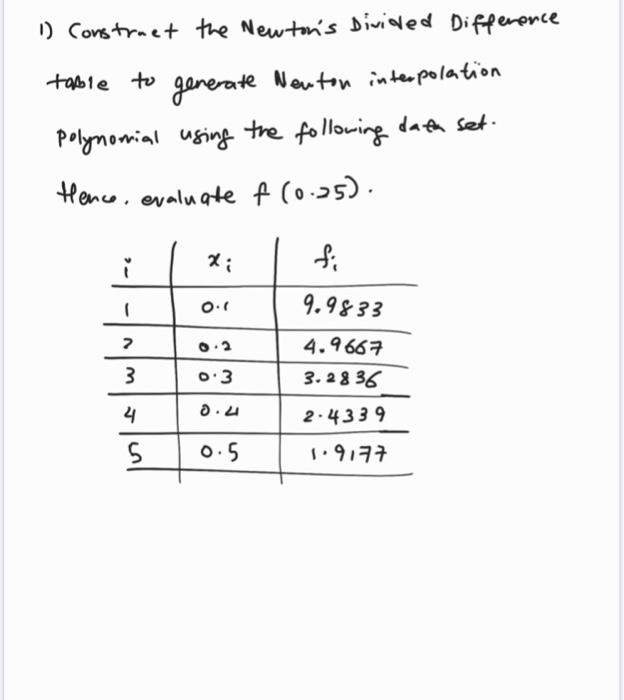 1) Construct the Newton's Divided Difference
table to generate Newton interpolation
polynomial using the following data set.
Hence, evaluate f(0.25).
i xi fi
1 0.1 9.9833
2 0.2 4.9667
3 0.3 3.2836
4 0.4 2.4339
5 0.5 1.9177